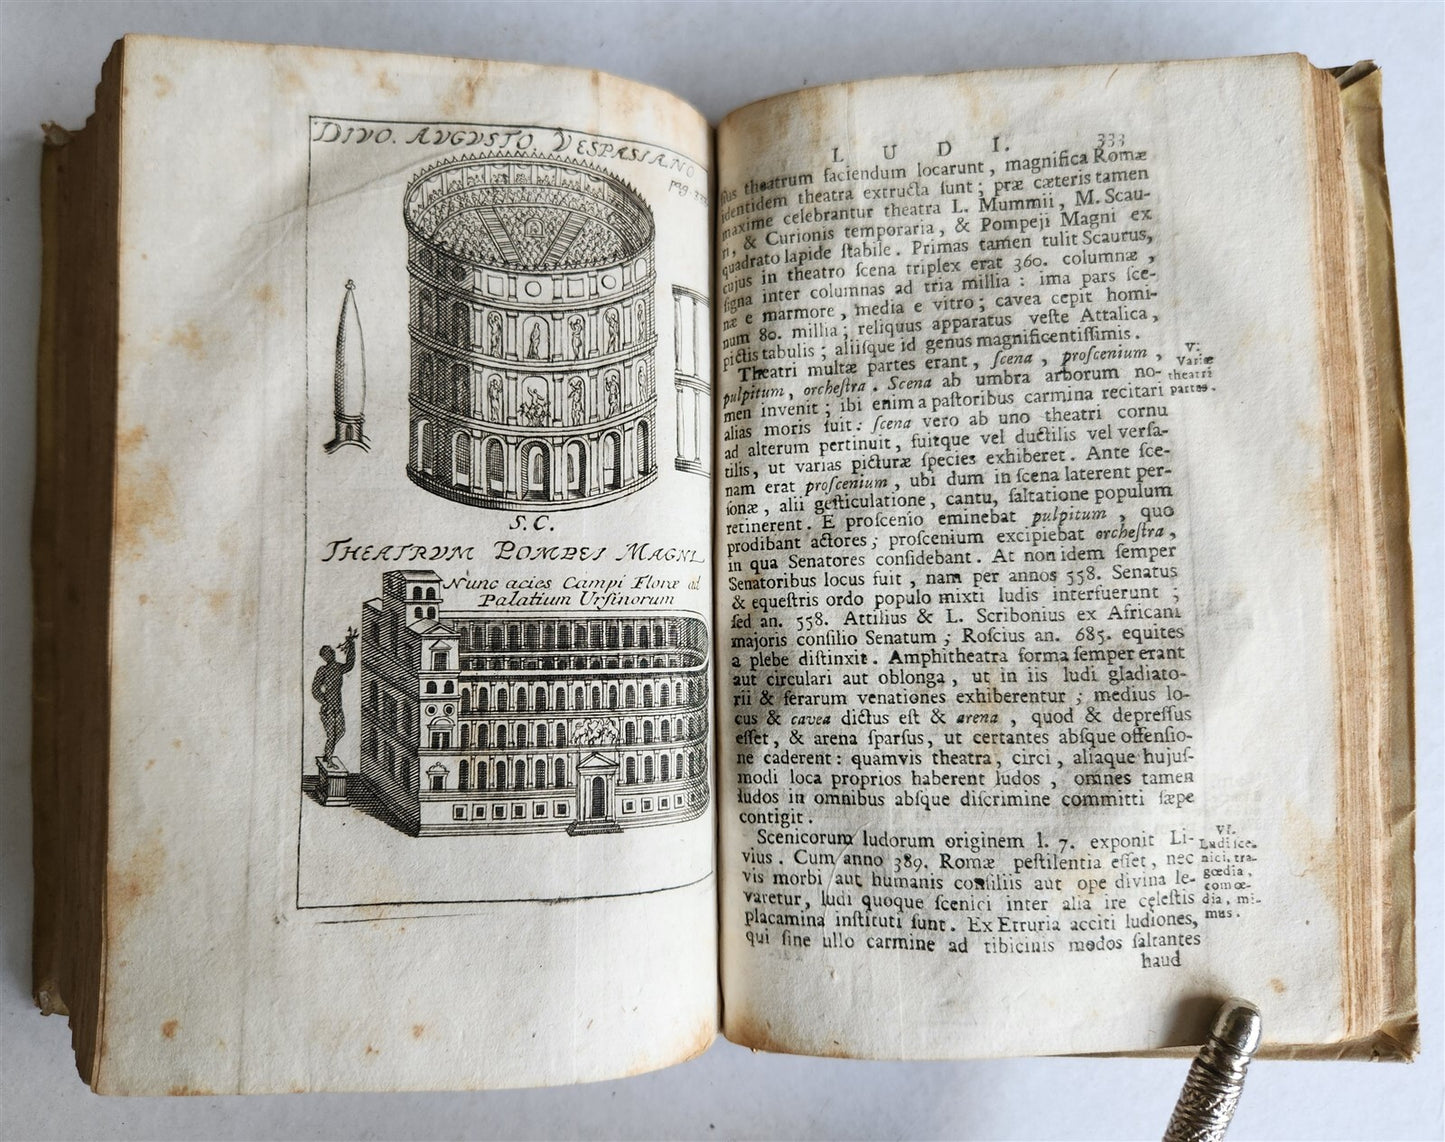 DIVO. AVGVSTO. VESPASIANO
pag.
S. C.
THEATRVM POMPEI MAGNI
Nunc acies Campi Floræ ad
Palatium Urſinorum
L U D I. 333
theatrum faciendum locarunt, magnifica Romæ
identidem theatra extructa ſunt; præ cæteris tamen
maxime celebrantur theatra L. Mummii, M. Scau-
ri, & Curionis temporaria, & Pompeji Magni ex
quadrato lapide ſtabile. Primas tamen tulit Scaurus,
cujus in theatro ſcena triplex erat 360. columnæ,
ſigna inter columnas ad tria millia: ima pars ſce-
næ e marmore, media e vitro; cavea cepit homi-
num 80. millia; reliquus apparatus veſte Attalica,
pictis tabulis; aliiſque id genus magnificentiſſimis.
Theatri multæ partes erant, ſcena, proſcenium,
pulpitum, orcheſtra. Scena ab umbra arborum no-
men invenit; ibi enim a paſtoribus carmina recitari
alias moris fuit: ſcena vero ab uno theatri cornu
ad alterum pertinuit, fuitque vel ductilis vel verſa-
tilis, ut varias picturæ ſpecies exhiberet. Ante ſce-
nam erat proſcenium, ubi dum in ſcena laterent per-
ſonæ, alii geſticulatione, cantu, ſaltatione populum
retinerent. E proſcenio eminebat pulpitum, quo
prodibant actores; proſcenium excipiebat orcheſtra,
in qua Senatores conſidebant. At non idem ſemper
Senatoribus locus fuit, nam per annos 558. Senatus
& equeſtris ordo populo mixti ludis interfuerunt;
ſed an. 558. Attilius & L. Scribonius ex Africani
majoris conſilio Senatum; Roſcius an. 685. equites
a plebe diſtinxit. Amphitheatra forma ſemper erant
aut circulari aut oblonga, ut in iis ludi gladiato-
rii & ferarum venationes exhiberentur; medius lo-
cus & cavea dictus eſt & arena, quod & depreſſus
eſſet, & arena ſparſus, ut certantes abſque offenſio-
ne caderent: quamvis theatra, circi, aliaque hujuſ-
modi loca proprios haberent ludos, omnes tamen
ludos in omnibus abſque diſcrimine committi ſæpe
contigit.
Scenicorum ludorum originem l. 7. exponit Li-
vius. Cum anno 389. Romæ peſtilentia eſſet, nec
vis morbi aut humanis conſiliis aut ope divina le-
varetur, ludi quoque ſcenici inter alia iræ cęleſtis
placamina inſtituti ſunt. Ex Etruria acciti ludiones,
qui ſine ullo carmine ad tibicinis modos ſaltantes
haud
V.
Variæ
theatri
partes.
VI.
Ludi ſce-
nici, tra-
gœdia,
comœ-
dia, mi-
mus.